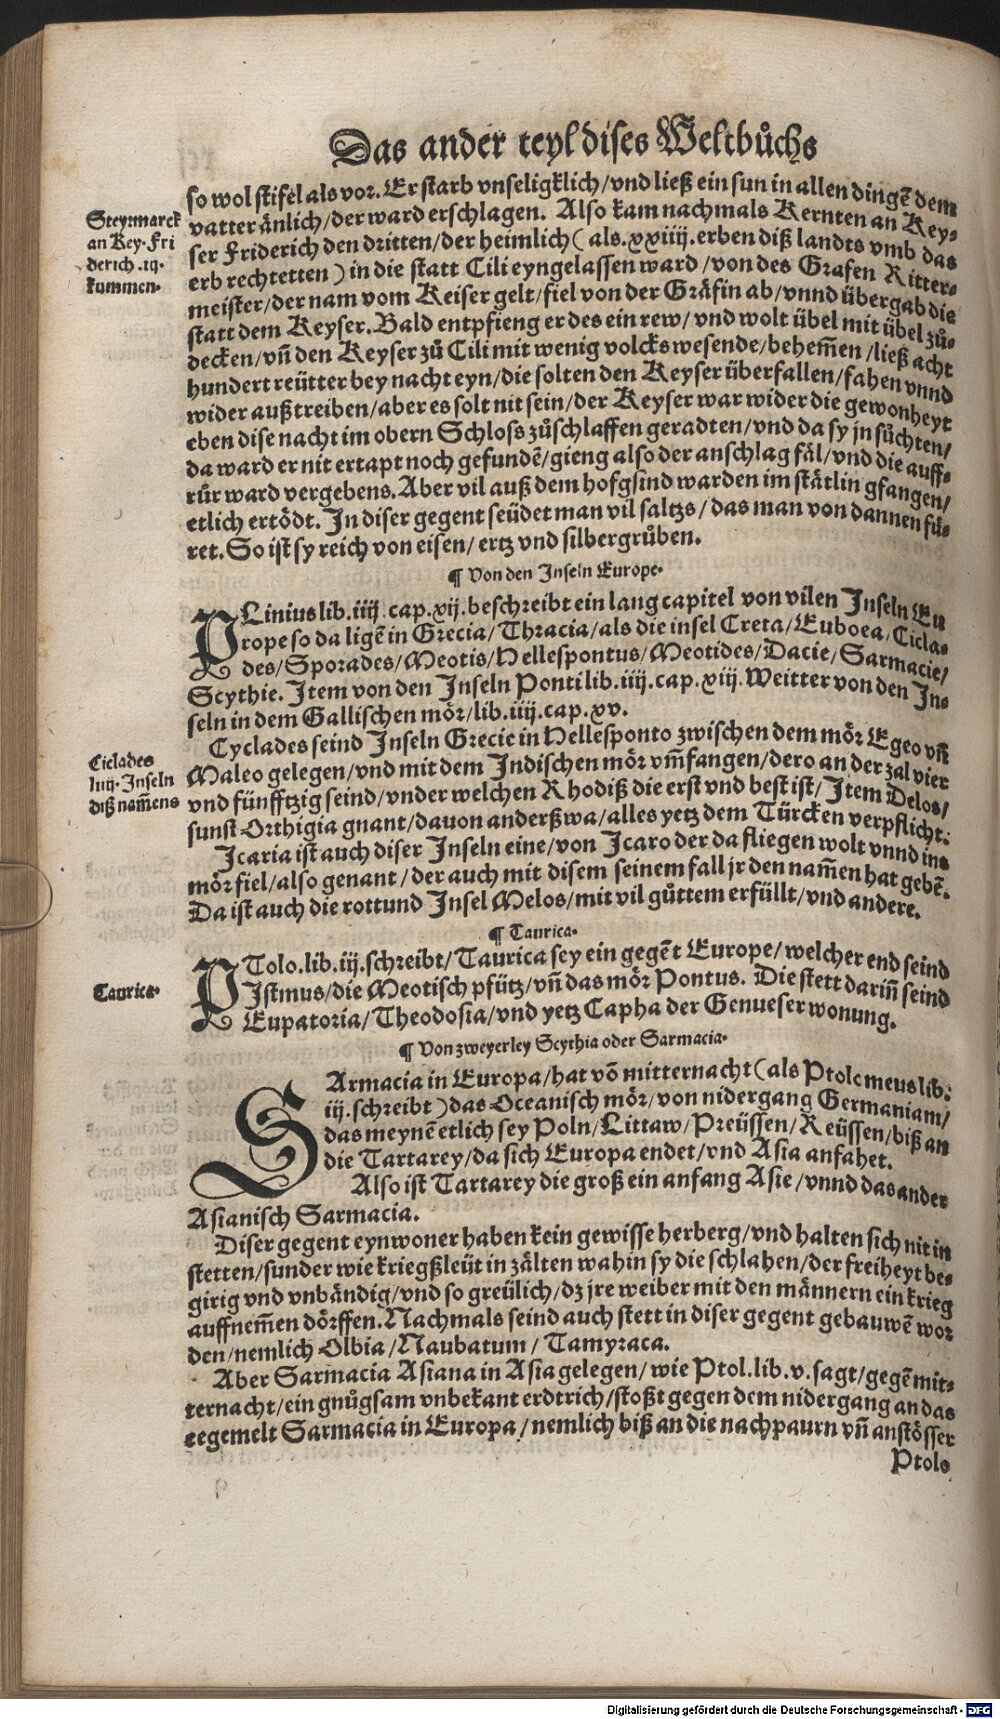 Das ander teyl dises Weltbůchs
so wol stifel als vor. Er starb vnseligklich/vnd ließ ein sun in allen dingē dem
vatter änlich/der ward erschlagen. Also kam nachmals Kernten an Key-
ser Friderich den dritten/der heimlich (als .xxiiij. erben diß landts vmb das
erb rechtetten) in die statt Cili eyngelassen ward/von des Grafen Ritter-
meister/der nam vom Keiser gelt/fiel von der Gräfin ab/vnnd übergab die
statt dem Keyser. Bald entpfieng er des ein rew/vnd wolt übel mit übel zů-
decken/vñ den Keyser zů Cili mit wenig volcks wesende/behem̃en/ließ acht
hundert reütter bey nacht eyn/die solten den Keyser überfallen/fahen vnnd
wider außtreiben/aber es solt nit sein/der Keyser war wider die gewonheyt
eben dise nacht im obern Schloss zůschlaffen geradten/vnd da sy jn sůchten/
da ward er nit ertapt noch gefundē/gieng also der anschlag fäl/vnd die auff-
růr ward vergebens. Aber vil auß dem hofgsind warden im stätlin gfangen/
etlich ertödt. In diser gegent seüdet man vil saltzs/das man von dannen fü-
ret. So ist sy reich von eisen/ertz vnd silbergrůben.
Steyrmarck
an Key. Fri
derich .iij.
kummen.
¶ Von den Inseln Europe.
PLinius lib. iiij. cap. xij. beschreibt ein lang capitel von vilen Inseln Eu
rope so da ligē in Grecia/Thracia/als die insel Creta/Euboea/Cicla-
des/Sporades/Meotis/Hellespontus/Meotides/Dacie/Sarmacie/
Scythie. Item von den Inseln Ponti lib. iiij. cap. xiij. Weitter von den In-
seln in dem Gallischen mör/lib. iiij. cap. xv.
Cyclades seind Inseln Grecie in Hellesponto zwischen dem mör Egeo vñ
Maleo gelegen/vnd mit dem Indischen mör vm̃fangen/dero an der zal vier
vnd fünfftzig seind/vnder welchen Rhodiß die erst vnd best ist/Item Delos/
sunst Orthigia gnant/dauon anderßwa/alles yetz dem Türcken verpflicht.
Icaria ist auch diser Inseln eine/von Icaro der da fliegen wolt vnnd ins
mör fiel/also genant/der auch mit disem seinem fall jr den nam̃en hat gebē.
Da ist auch die rottund Insel Melos/mit vil güttem erfüllt/vnd andere.
Ciclades
liiij. Inseln
diß nam̃ens
¶ Taurica.
PTolo. lib. iij. schreibt/Taurica sey ein gegēt Europe/welcher end seind
Istmus/die Meotisch pfütz/vñ das mör Pontus. Die stett dariñ seind
Eupatoria/Theodosia/vnd yetz Capha der Genueser wonung.
Taurica.
¶ Von zweyerley Scythia oder Sarmacia.
SArmacia in Europa/hat vō mitternacht (als Ptolemeus lib.
iij. schreibt) das Oceanisch mör/von nidergang Germaniam/
das meynē etlich sey Poln/Littaw/Preüssen/Reüssen/biß an
die Tartarey/da sich Europa endet/vnd Asia anfahet.
Also ist Tartarey die groß ein anfang Asie/vnnd das ander
Asianisch Sarmacia.
Diser gegent eynwoner haben kein gewisse herberg/vnd halten sich nit in
stetten/sunder wie kriegßleüt in zälten wahin sy die schlahen/der freiheyt be-
girig vnd vnbändig/vnd so greülich/dz jre weiber mit den männern ein krieg
auffnem̃en dörffen. Nachmals seind auch stett in diser gegent gebauwē wor
den/nemlich Olbia/Naubatum/Tamyraca.
Aber Sarmacia Asiana in Asia gelegen/wie Ptol. lib. v. sagt/gegē mit-
ternacht/ein gnůgsam vnbekant erdtrich/stoßt gegen dem nidergang an das
eegemelt Sarmacia in Europa/nemlich biß an die nachpaurn vñ anstösser
Ptolo
Digitalisierung gefördert durch die Deutsche Forschungsgemeinschaft - DFG